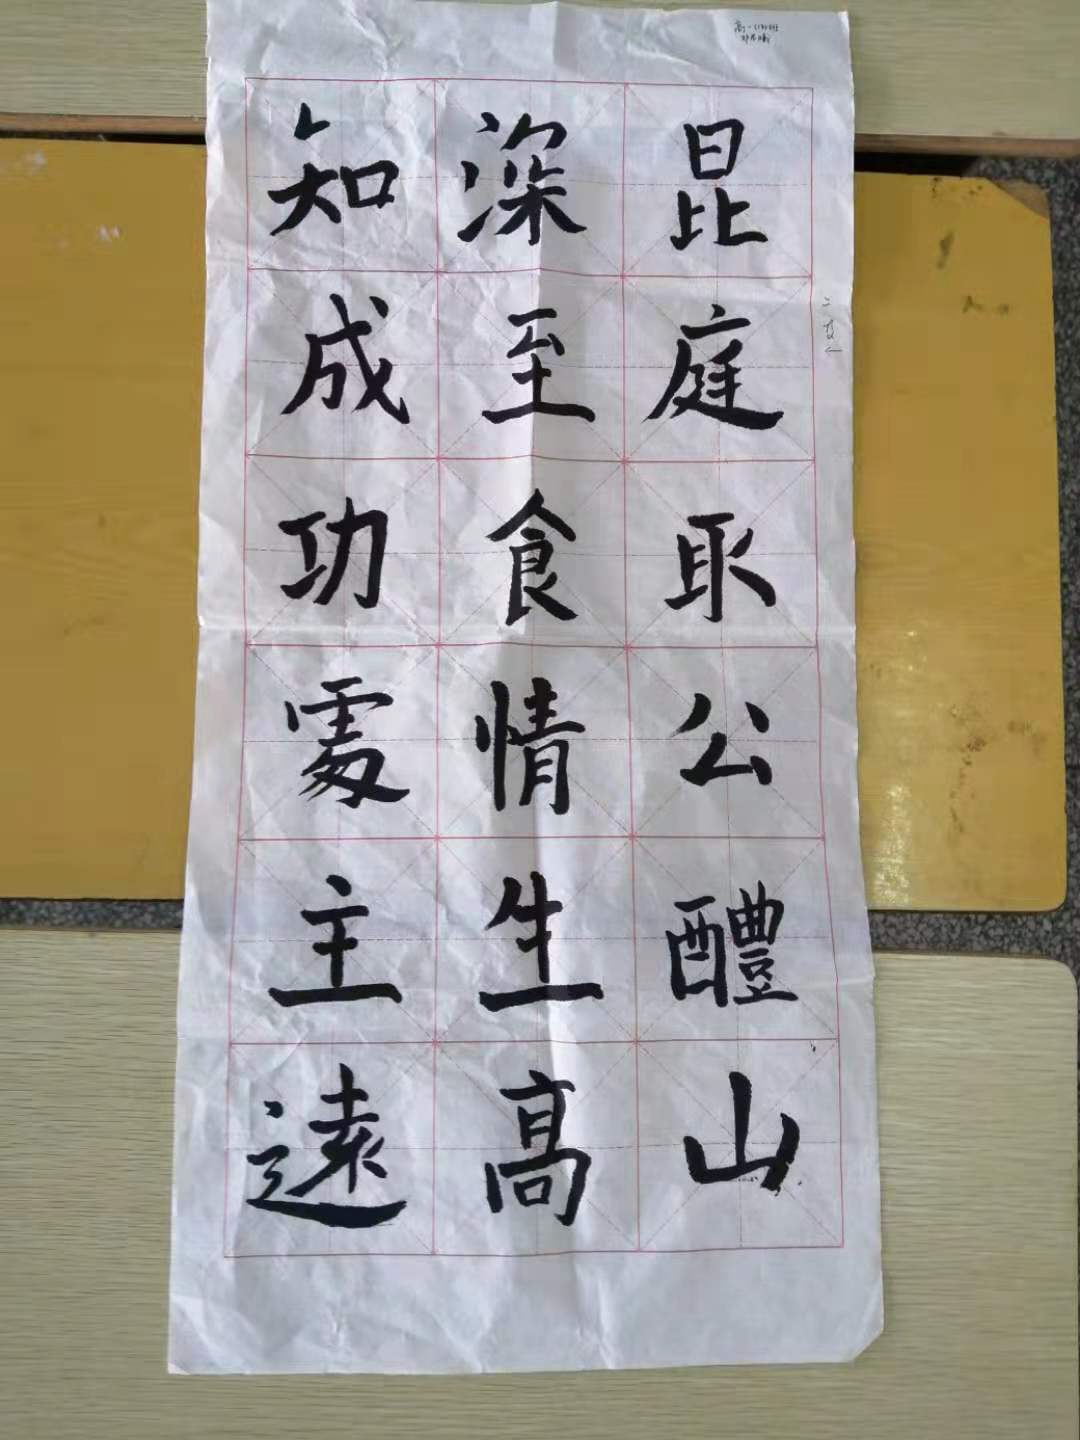 昆庭取公醴山
深至食情生高
知成功處主遠
二等